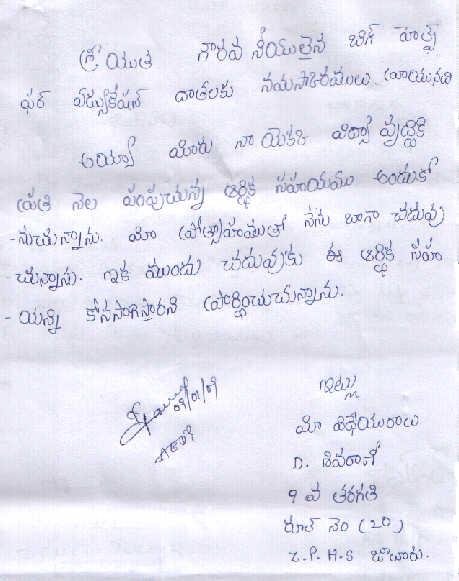 శ్రీయుత గౌరవనీయులైన బిగ్ హెల్ప్
ఫర్ ఎడ్యుకేషన్ దాతలకు నమస్కారములు. వ్రాయునది
అయ్యా మీరు నా యొక్క విద్యా వృద్ధికి
ప్రతి నెల పంపుచున్న ఆర్థిక సహయము అందుకో
-నుచున్నాను. మీ ప్రోత్సాహముతో నేను బాగా చదువు
చున్నాను. ఇక ముందు చదువుకు ఈ ఆర్థిక సహా
-యాన్ని కొనసాగిస్తారని ప్రార్థించుచున్నాను.
09/01/09
ఇట్లు
మీ విధేయురాలు
D. శివరాణి
9 వ తరగతి
రూల్ నెం (20)
Z.P.H.S